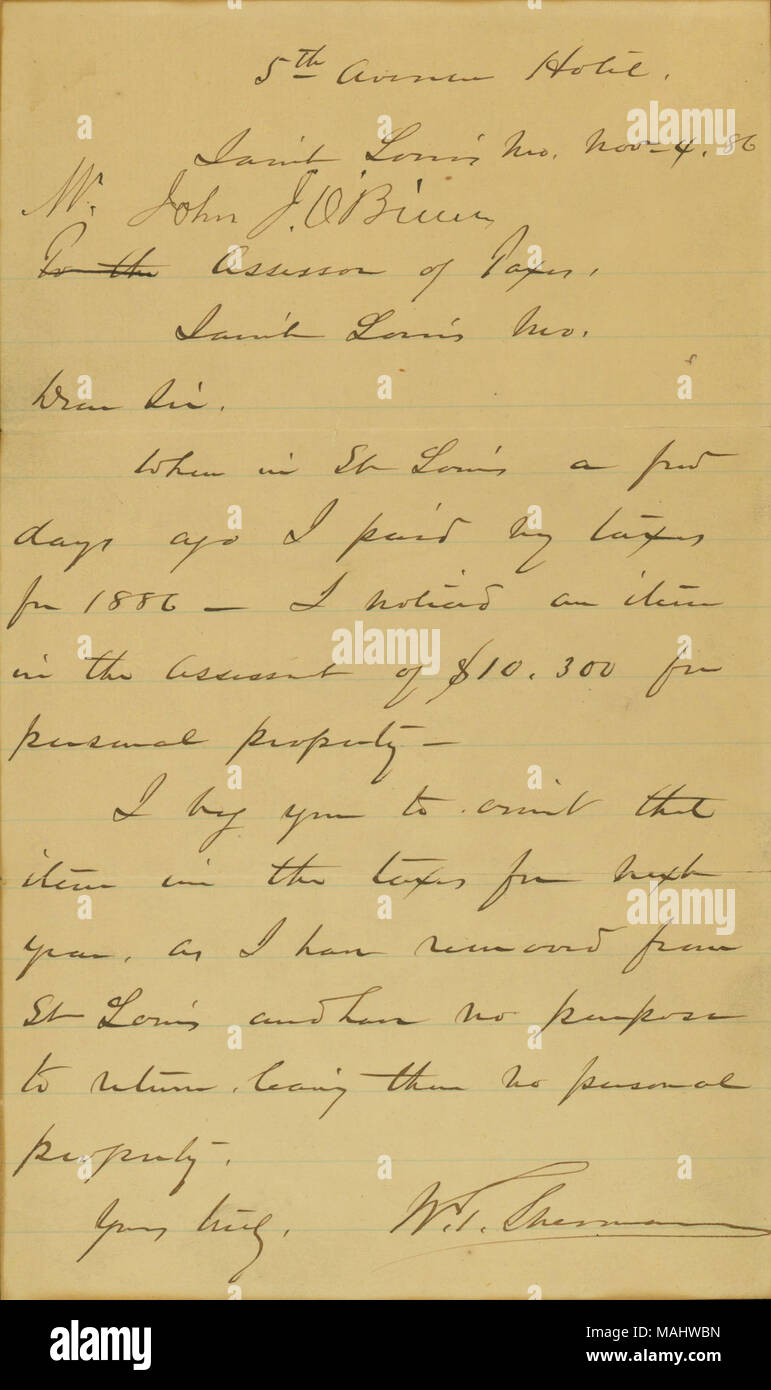 5th Avenue Hotel.
Saint Louis Mo. Nov-4.86
Mr. John J. O'Brien
To the Assessor of Taxes,
Saint Louis Mo.
Dear Sir.
When in St Louis a few
days ago I paid my taxes
for 1886 — I noticed an item
in the Assessmt of $10.300 for
personal property—
I beg you to omit that
item in the taxes for next
year, as I have removed from
St Louis and have no purpose
to return, leaving there no personal
property.
Yours truly,
W. T. Sherman
alamy
Image ID: MAHWBN
www.alamy.com